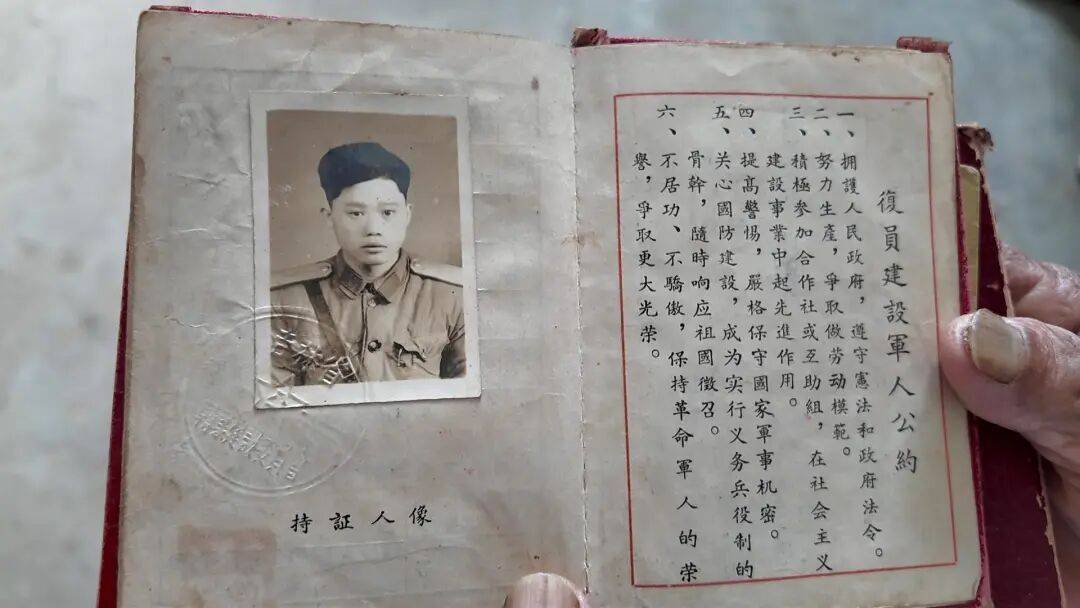 復員建設軍人公約
一、拥護人民政府，遵守憲法和政府法令。
二、努力生產，爭取做劳动模範。
三、積極参加合作社或互助組，在社会主义
建設事業中起先進作用。
四、提高警惕，嚴格保守國家軍事机密。
五、关心國防建設，成为实行义务兵役制的
骨幹，隨時响应祖國徵召。
六、不居功、不驕傲，保持革命軍人的荣
譽，爭取更大光荣。
持証人像